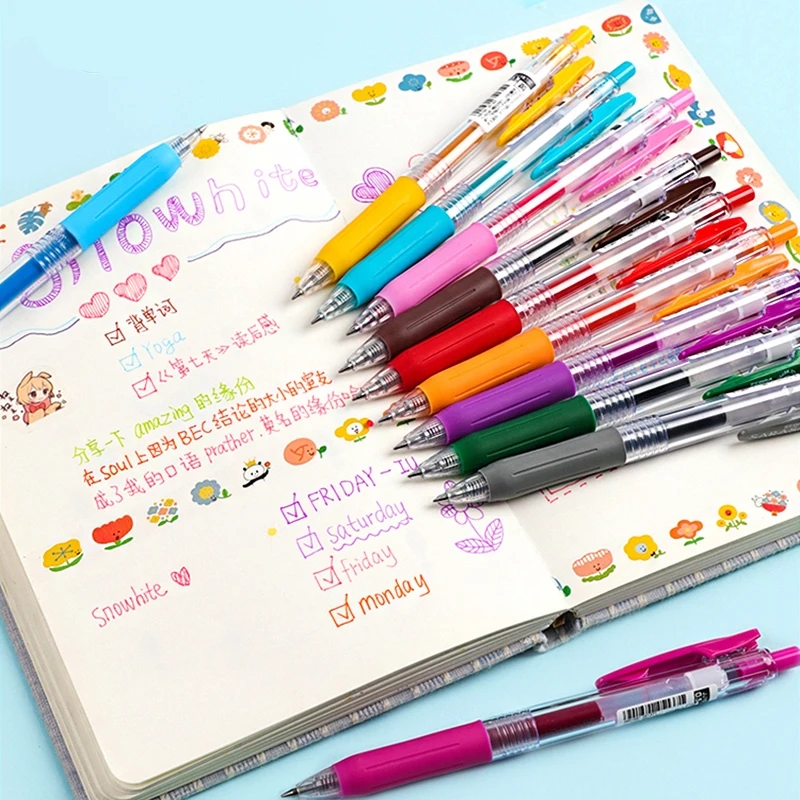 Snowhite
背单词
Yoga
《第七天》读后感
分享一下 amazing 的缘份
在soul上因为BEC结论的大小的室友
成了我的口语prather.莫名的缘份哈
FRIDAY-IU
saturday
friday
monday
Snowhite